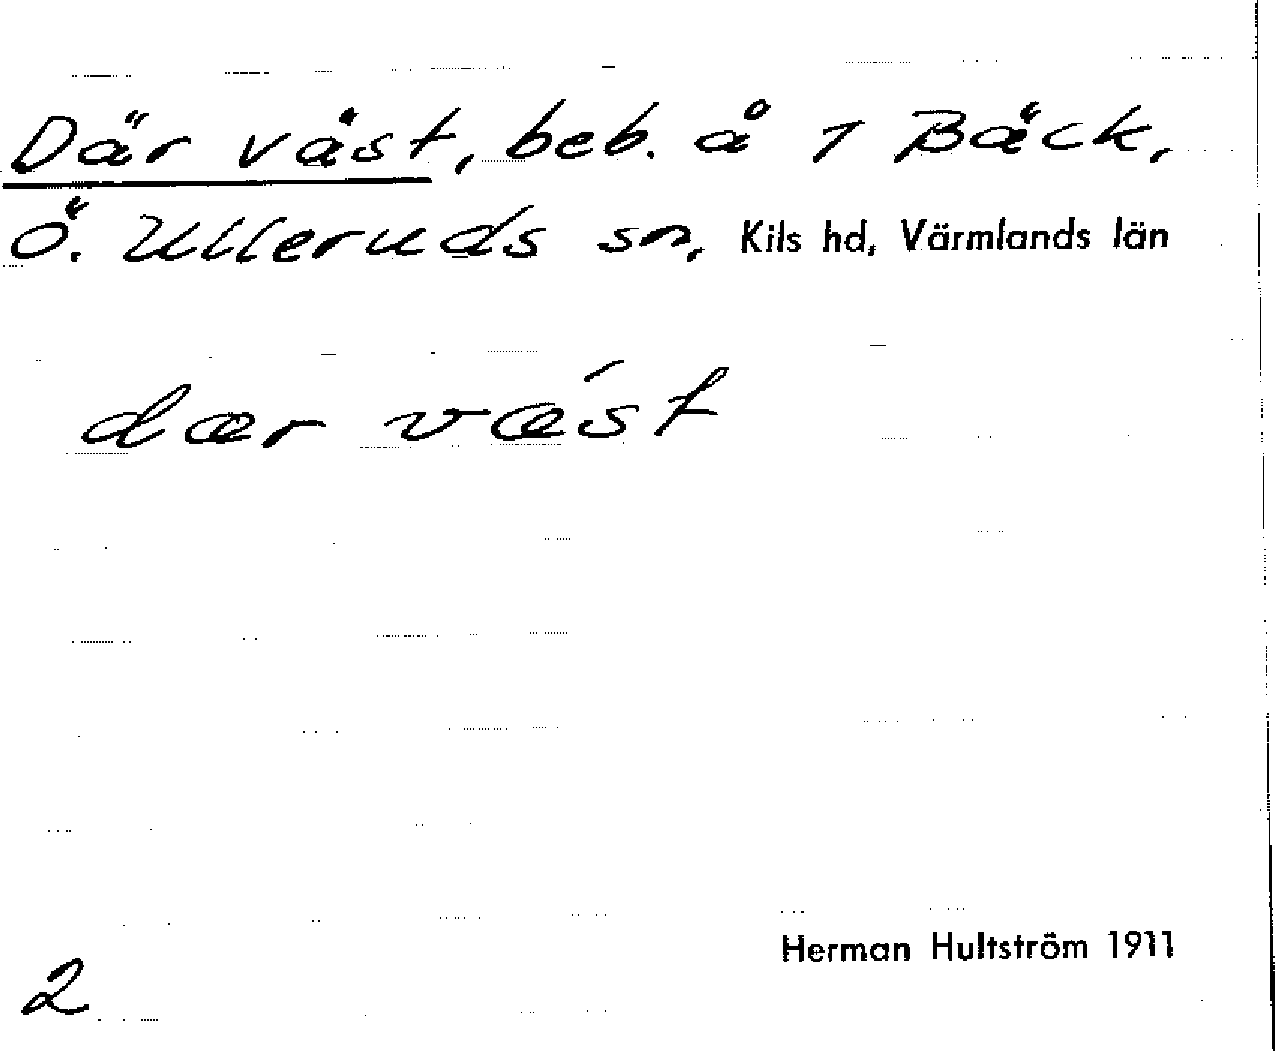 Där väst, beb. å 1 Bäck,
Ö. Ulleruds sn, Kils hd, Värmlands län
dær vǽst
Herman Hultström 1911
2